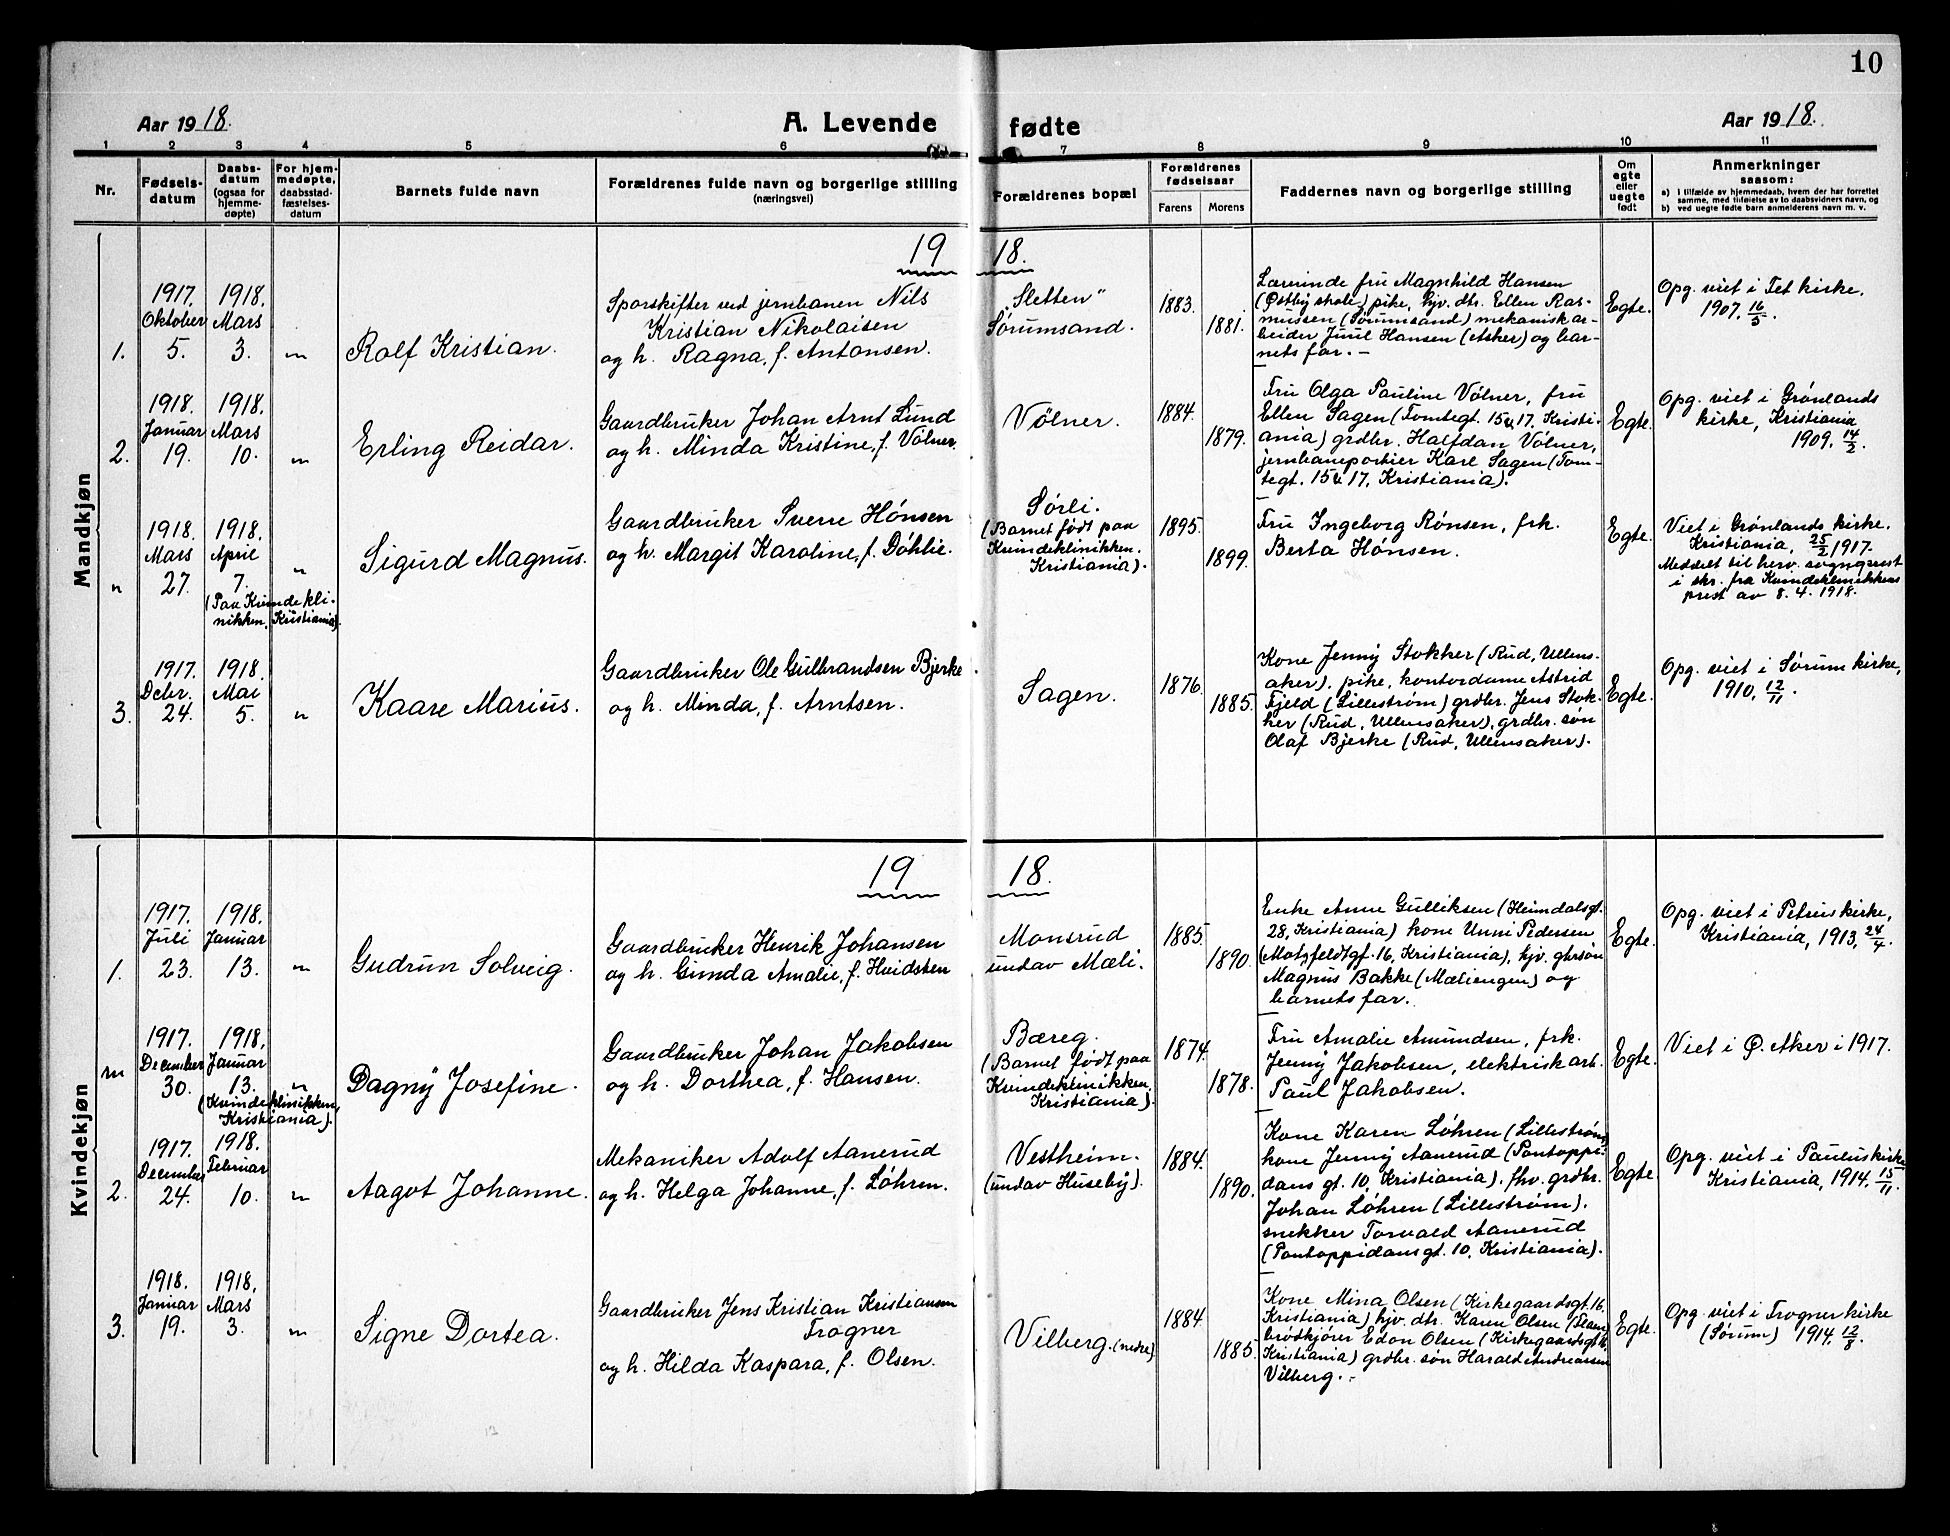 10
Aar 1918.
A. Levende
fødte
Aar 1918.
1 2 3 4 5 6 7 8 9 10 11
Nr.
Fødsels-
datum
Daabs-
datum
(ogsaa for
hjemme-
døpte)
For hjem-
medøpte,
daabsstad-
fæstelses-
datum
Barnets fulde navn
Forældrenes fulde navn og borgerlige stilling
(næringsvei)
Forældrenes bopæl
Forældrenes
fødselsaar
Farens
Morens
Faddernes navn og borgerlige stilling
Om
egte
eller
uegte
født
Anmerkninger
saasom:
a) I tilfælde av hjemmedaab, hvem der har forrettet
samme, med tilføielse av to daabsvidners navn, og
b) ved uegte fødte barn anmelderens navn m. v.
Mandkjøn
19
18.
1.
1917.
Oktober
5.
1918.
Mars
3.
"
Rolf Kristian.
Sporskifter ved jernbanen Nils
Kristian Nikolaisen
og h. Ragna, f. Antonsen.
"Sletten"
Sørumsand.
1883.
1881.
Lærerinde fru Magnhild Hansen
(Østby skole) pike, hjv. dtr. Ellen Ras-
mussen (Sørumsand) mekanisk ar-
beider Juul Hansen (Asker) og bar-
nets far.-
Egte.
Opg. viet i Fet kirke,
1907, 16/5.
2.
1918.
Januar
19.
1918.
Mars
10.
"
Erling Reidar.
Gaardbruker Johan Arnt Lund
og h. Minda Kristine, f. Vølner.
Vølner.
1884.
1879.
Fru Olga Pauline Vølner, fru
Ellen Sagen (Tomtegt. 15 v. 17, Kristi-
ania) grdbr. Halfdan Vølner,
jernbaneportier Karl Sagen (Tom-
tegt. 15 v. 17, Kristiania).
Egte.
Opg. viet i Grønlands
kirke, Kristiania
1909, 14/2.
"
1918.
Mars
27.
1918.
April
7.
(Paa Kvindekli-
nikken, Kristiania).
"
Sigurd Magnus.
Gaardbruker Sverre Hønsen
og h. Margit Karoline, f. Døhlie.
Sørli.
(Barnet født paa
Kvindeklinikken.
Kristiania).
1895.
1899.
Fru Ingeborg Rønsen, frk.
Berta Hønsen.
Egte.
Viet i Grønlands kirke,
Kristiania, 25/2 1917.
Meddelt til herv. sogneprest
i skr. fra Kvindeklinikkens
prest av 8. 4. 1918.
3.
1917.
Decbr.
24.
1918.
Mai
5.
"
Kaare Marius.
Gaardbruker Ole Gulbrandsen Bjerke
og h. Minda, f. Arntsen.
Sagen.
1876.
1885.
Kone Jenny Stokker (Rud, Ullens-
aker), pike, kontordame Astrid
Fjeld (Lillestrøm) grdbr. Jens Stok-
ker (Rud, Ullensaker), grdbr. søn
Olaf Bjerke (Rud, Ullensaker).
Egte.
Opg. viet i Sørum kirke,
1910, 12/11.
Kvindekjøn
19
18.
1.
1917.
Juli
23.
1918.
Januar
13.
"
Gudrun Solveig.
Gaardbruker Henrik Johansen
og h. Gunda Amalie, f. Hvidsten
Monsrud
undav Mæli.
1885.
1890.
Enke Anne Gulliksen (Heimdalsgt.
28, Kristiania) kone Unni Pedersen
(Motzfeldtgt. 16, Kristiania), hjv. gbrsøn
Magnus Bakke (Mæliengen) og
barnets far.
Egte.
Opg. viet i Petruskirke,
Kristiania, 1913, 24/4.
"
1917.
December
30.
1918.
Januar
13.
(Kvindeklinikken,
Kristiania).
"
Dagny Josefine.
Gaardbruker Johan Jakobsen
og h. Dorthea, f. Hansen.
Bæreg.
(Barnet født paa
Kvindeklinikken,
Kristiania).
1874.
1878.
Fru Amalie Amundsen, frk.
Jenny Jakobsen, elektrisk arb.
Paul Jakobsen.
Egte.
Viet i Ø. Aker i 1917.
2.
1917.
December
24.
1918.
Februar
10.
"
Aagot Johanne.
Mekaniker Adolf Aanerud
og h. Helga Johanne, f. Løhren.
Vestheim.
(undav Huseby).
1884.
1890.
Kone Karen Løhren (Lillestrøm)
kone Jenny Aanerud (Pontoppi-
dans gt. 10, Kristiania). fhv. grdbr.
Johan Løhren (Lillestrøm).
snekker Torvald Aanerud
(Pontoppidansgt. 10, Kristiania).
Egte.
Opg. viet i Pauluskirke
Kristiania, 1914, 15/11.
3.
1918.
Januar
19.
1918.
Mars
3.
"
Signe Dortea.
Gaardbruker Jens Kristian Kristiansen
Frogner
og h. Hilda Kaspara, f. Olsen.
Vilberg. (nedre)
1884.
1885.
Kone Mina Olsen (Kirkegaardsgt. 16,
Kristiania) hjv. dtr. Karen Olsen
brødkjører Edon Olsen (Kirkegaardsgt. 16
Kristiania) grdbr. søn Harald Andreassen
Vilberg.-
Egte.
Opg. viet i Frogner kirke
(Sørum) 1914, 12/8.